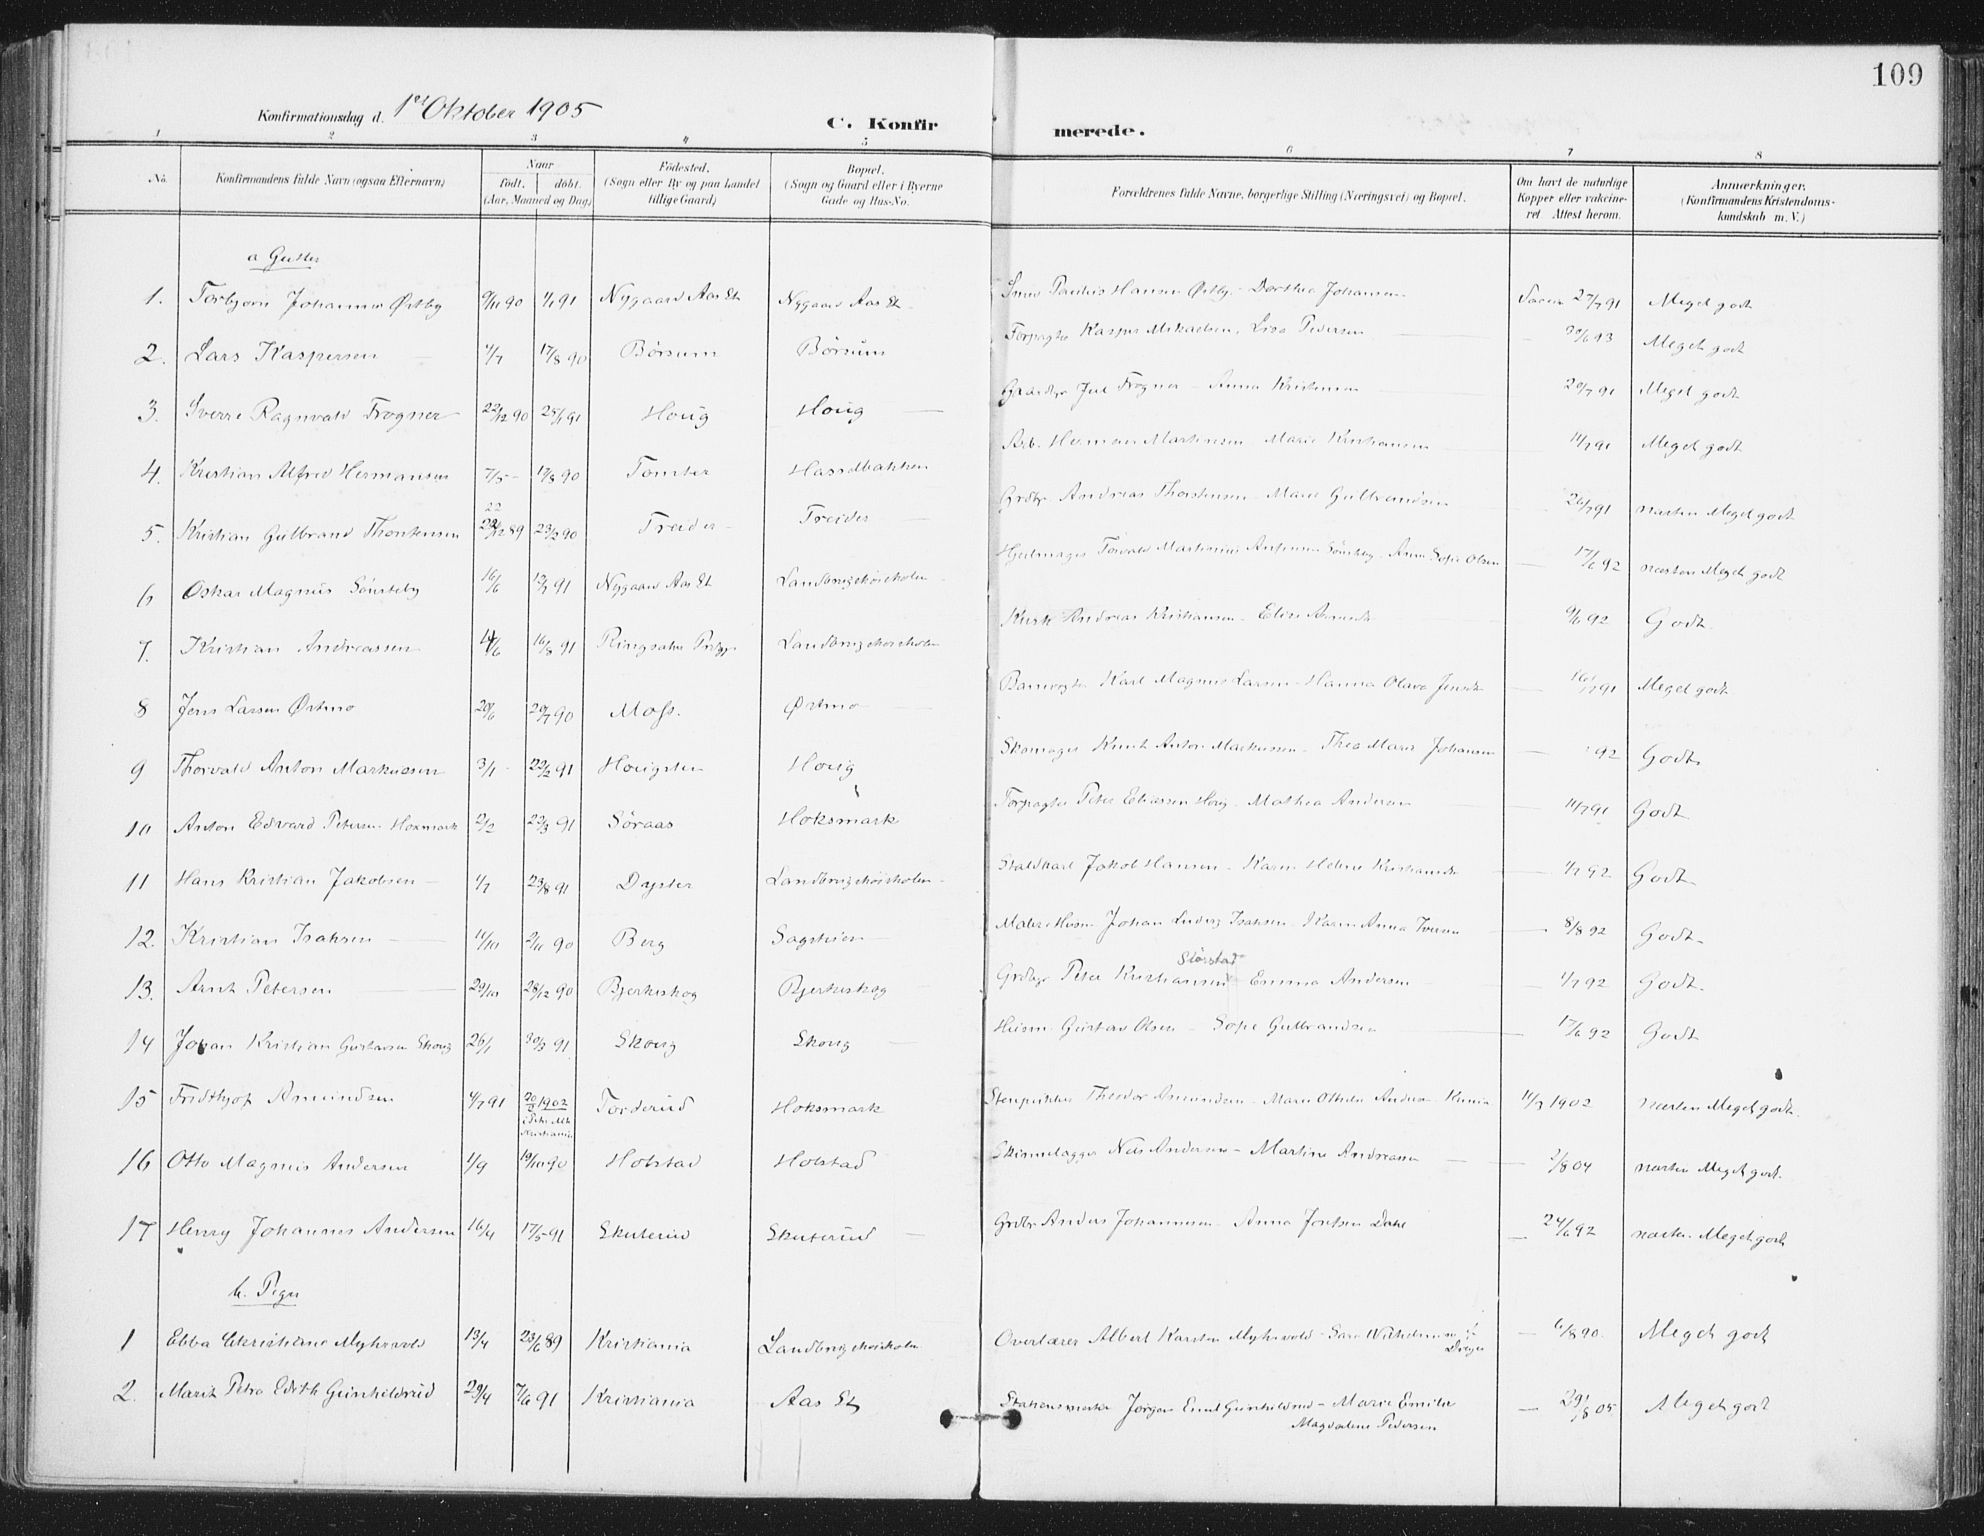 109
Konfirmationsdag d. 1ste Oktober 1905
C. Konfirmerede.
1 2 3 4 5 6 7 8
No. Konfirmandens fulde Navn (ogsaa Efternavn) Naar født. døbt. (Aar, Maaned og Dag) Födested. (Sogn eller By og paa Landet tillige Gaard) Bopæl. (Sogn og Gaard eller i Byerne Gade og Hus-No. Forældrenes fulde Navne, borgerlige Stilling (Næringsvei) og Bopæl. Om havt de naturlige Kopper eller vakcineret Attest herom. Anmærkninger. (Konfirmandens Kristendomskundskab m. V.)
a Gutter
1. Torbjørn Johannes Østby 9/11 90 1/1 91 Nygaard Aas St. Nygaard Aas St. Hansen Østby - Dorthea Johansen 27/7 91 Meget godt
2. Lars Kaspersen 4/7 17/8 90 Børsum Børsum Forpagter Kasper Mikaelsen, Lisa Pedersen 30/6 93 Meget godt
3. Sverre Ragnvald Frogner 22/12 90 25/1 91 Houg Houg Frogner - Anna Kristensen 20/7 91 Meget godt
4. Kristian Alfred Hermansen 7/5 - 17/8 90 Tomter Arb. Herman Martinsen - Marie Kristiansen 11/7 91 Meget godt
5. Kristian Gulbrand Thorstensen 22/12 89 23/2 90 Treider - Treider Grdbr. Andreas Thorstensen - Marie Gulbrandsen 26/7 91 næsten Meget godt
6 Oskar Magnus Sønsteby 16/6 12/7 91 Nygaard Aas St Landbrugshøiskolen Hjulmager Torvald Martinius Sønsteby - Anne Sofie Olsen 17/6 92 næsten Meget godt
7. Kristian Andreassen 14/6 16/8 91 Ringsaker Landbrugshøiskolen Kusk Andreas Kristiansen - Elise 9/6 92 Godt
8 Jens Larsen Østmo 20/6 20/7 90 Moss. Østmo Banevogter Karl Magnus Larsen - Hanna Olava Jensen 16/7 91 Meget godt
9 Thorvald Anton Markussen 3/1 - 22/2 91 Hougsten Houg Skomager Knut Anton Markussen - Thea Marie Johansen 92 Godt
10 Anton Edvard Petersen Hoxmark 2/2 22/3 91 Söraas Hoksmark Forpagter Peter Eliassen Houg - Mathea Andersen 11/7 91 Godt
11 Hans Kristian Jakobsen - 4/7 23/8 91 Dyster Landbrugshøiskolen - Staldkarl Jakob Hansen - Karen Helene Kristiansen 1/7 92 Godt
12. Kristian Isaksen 11/10 2/11 90 Berg Sagstuen Johan Ludvig Isaksen - Karen Anna Iversen 8/8 92 Godt
13. Arnt Petersen 29/10 28/12 90 Bjerkeskog Bjerkeskog Grdbr Peter Kristiansen Slörstad - Emma Andersen 1/7 92 Godt.
14 Johan Kristian Gustavsen Skoug 26/1 30/3 91 Skoug Skoug Husm. Gustav Olsen - Sofie Gulbrandsen 17/6 92 Godt
15 Fridthjof Amundsen 4/7 91 1902 Torderud Hoksmark Theodor Amundsen - Marie Othilie 1902 næsten Meget godt.
16 Otto Magnus Andersen 1/9 19/10 90 Holstad Holstad Nils Andersen - Martine Andreassen 04 næsten Meget godt.
17 Henry Johannes Andersen 16/4 17/5 91 Skuterud Skuterud Grdbr Anders Johannesen - Anna Dahl 24/6 92 næsten Meget godt
b. Piger
1 Ebba Christiane Myhrvold 13/4 23/6 89 Kristiania Landbrugshøiskolen Overlærer Albert Karsten Myhrvold - Sara Wilhelmine 6/8 90. Meget godt
2. Marit Petra Edith Gunhildrud 29/4 7/6 91 Kristiania Aas St Stationsmester Jørgen Gunhildrud - Marie Emilie Magdalene Pedersen 05 Meget godt